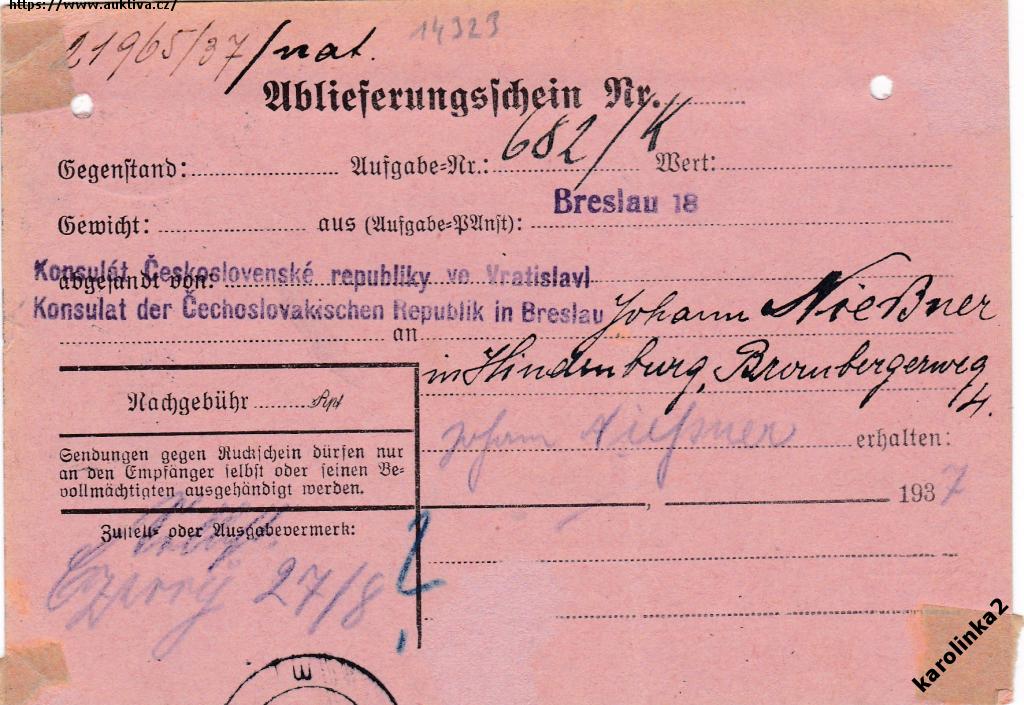 https://www.auktiva.cz/
21965/37/nat.
14323
Ablieferungsschein Nr.
Gegenstand: Aufgabe-Nr.: 682/K Wert:
Gewicht: aus (Aufgabe-PAnst): Breslau 18
Konsulát Československé republiky ve Vratislavi
abgesandt von:
Konsulat der Čechoslovakischen Republik in Breslau
an Johann Nießner
in Hindenburg, Brombergerweg
14.
Nachgebühr Rpf
Johann Nießner erhalten:
Sendungen gegen Rückschein dürfen nur
an den Empfänger selbst oder seinen Be-
vollmächtigten ausgehändigt werden.
, 1937
Zustell- oder Ausgabevermerk:
27/8
karolinka2